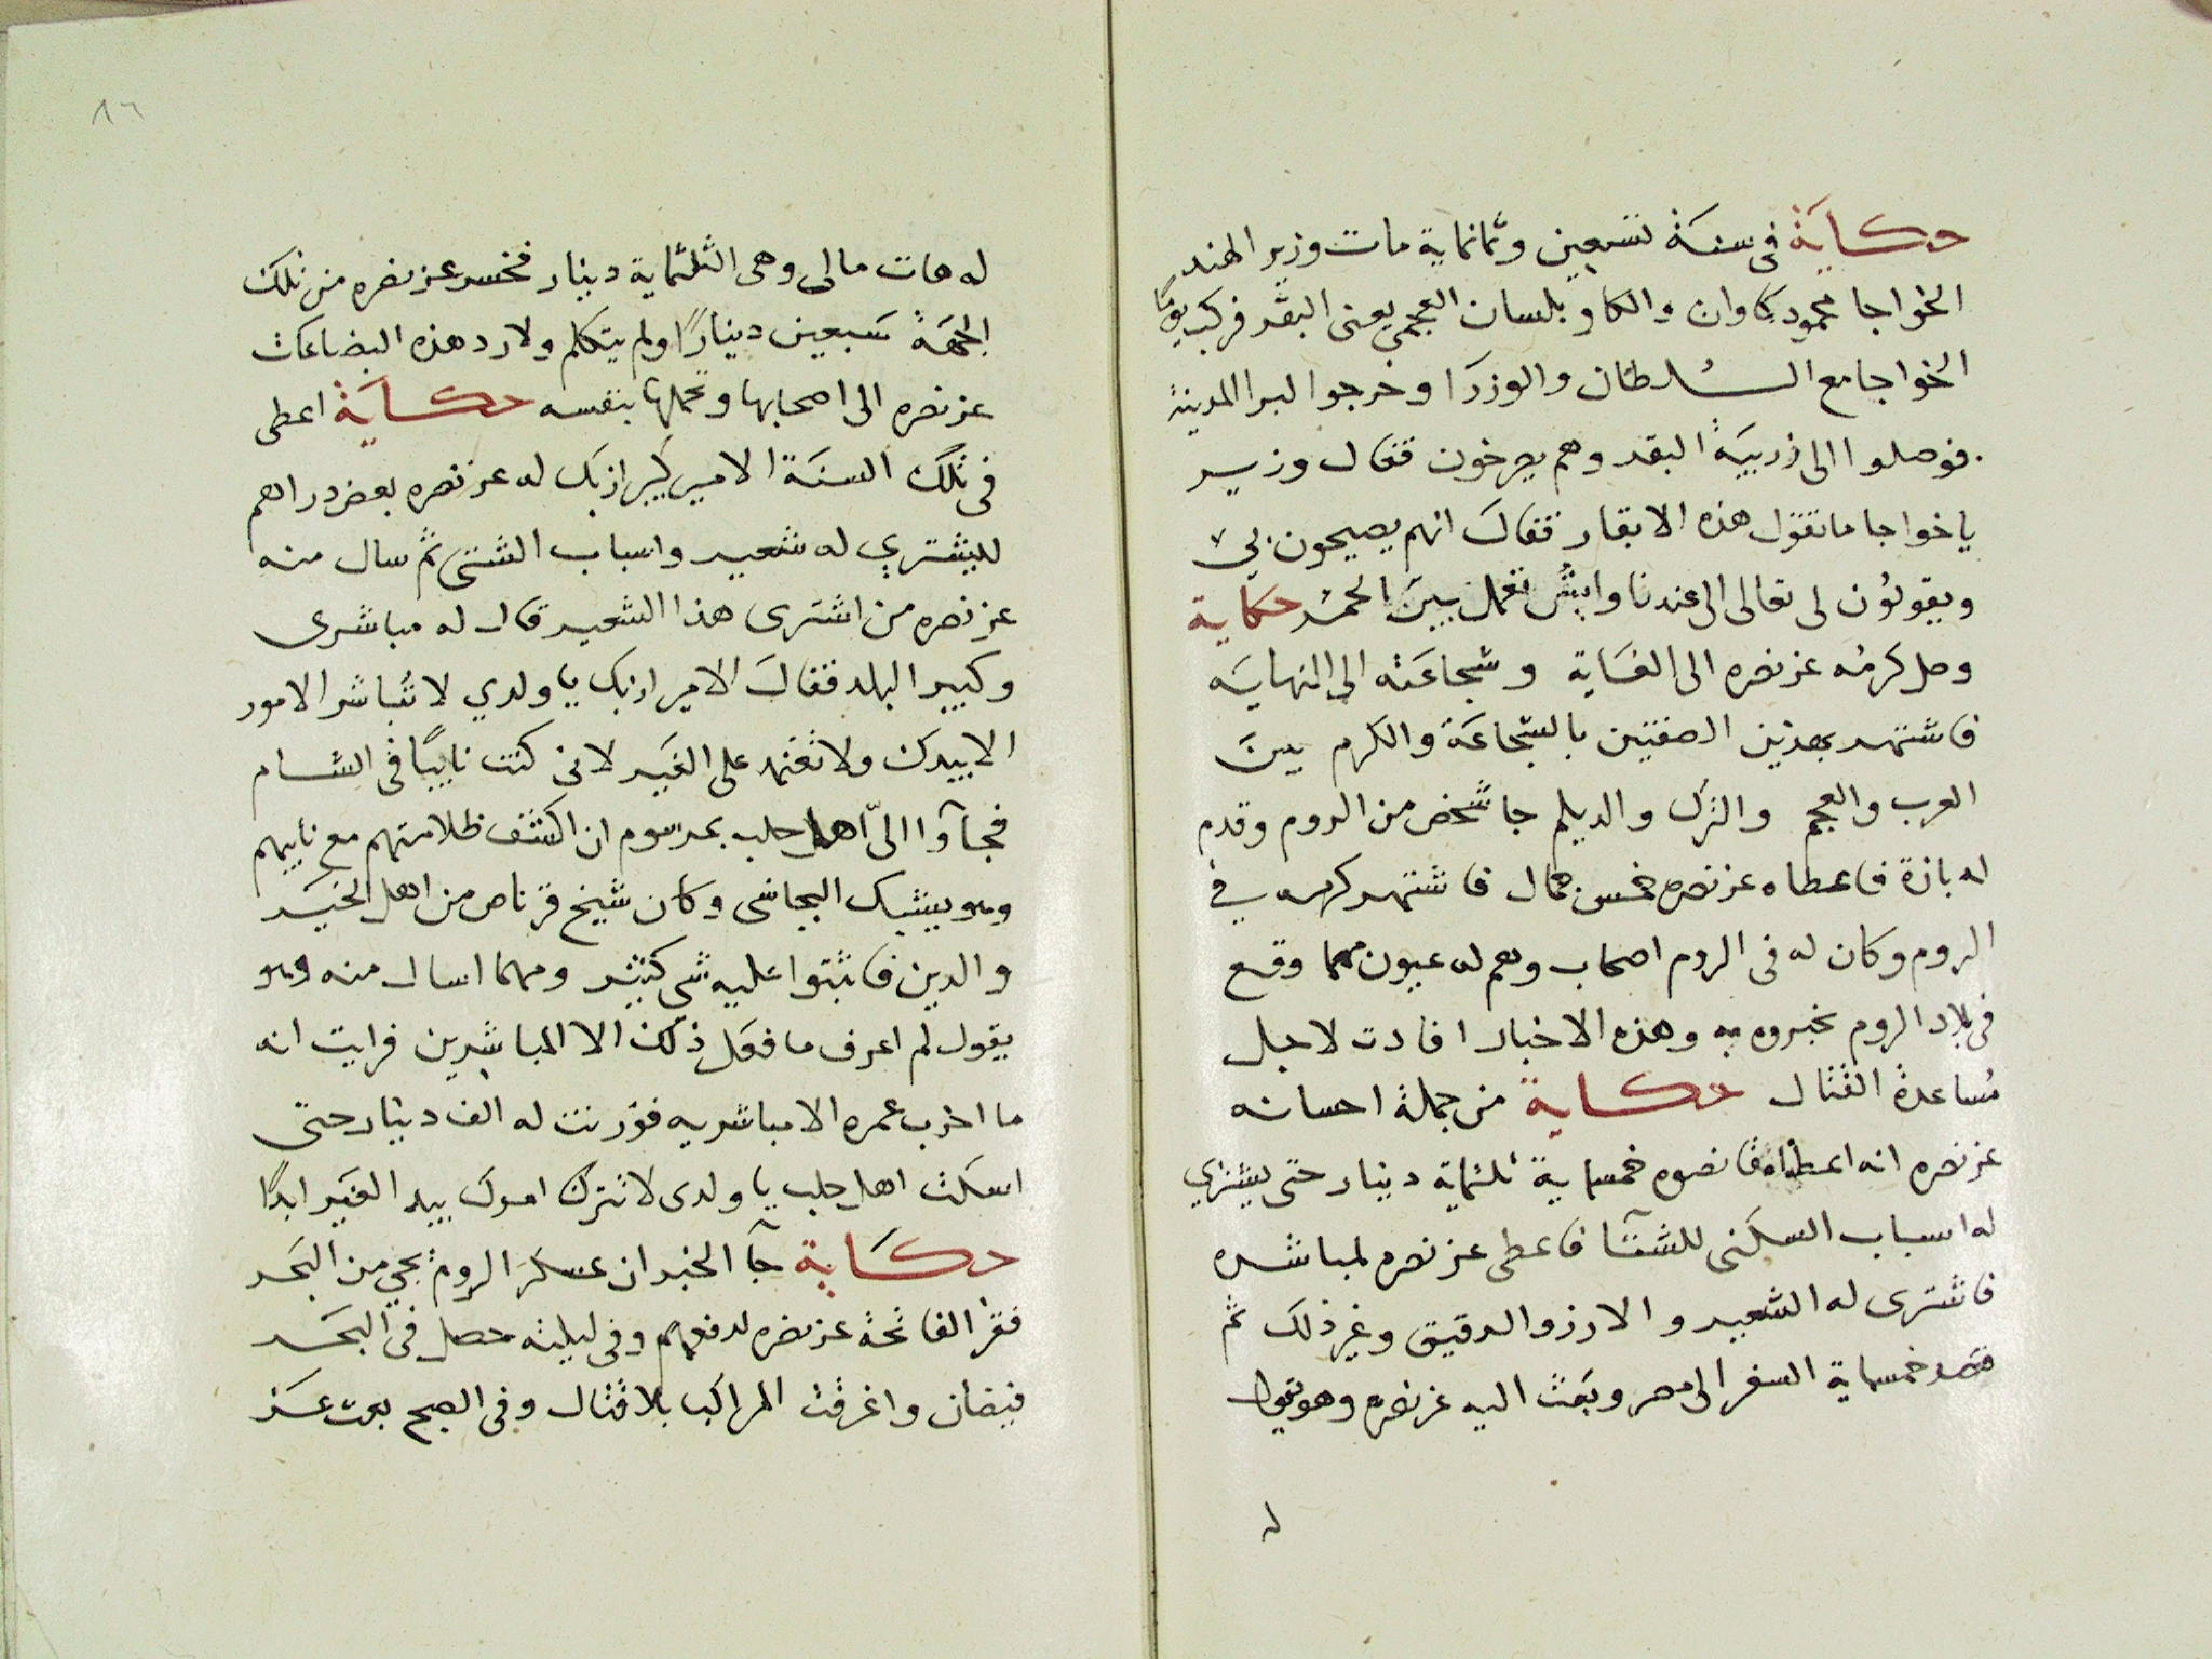 حكاية في سنة تسعين وثمانماية مات وزير الهند
الخواجا محمود كاوان والكاو بلسان العجمي يعنى البقر فركب يومًا
الخواجا مع السلطان والوزرا وخرجوا لبرا المدينة
فوصلوا الى زريبة البقر وهم يصرخون فقال وزير
ياخواجا ما تقول هذه الابقار فقال انهم يصيحون بى
ويقولون لى تعالى الى عندنا وايش تعمل بين الحمر حكاية
وصل كرمه عز نصره الى الغاية وشجاعته الى النهاية
فاشتهر بهذين الصفتين بالشجاعة والكرم بين
العرب والعجم والترك والديلم جا شخص من الروم وقدم
له بازة فاعطاه عز نصره خمس جمال فاشتهر كرمه في
الروم وكان له فى الروم اصحاب وهم له عيون مهما وقع
فى بلاد الروم يخبروه به وهذه الاخبار افادت لاجل
مُساعدة القتال حكاية من جملة احسانه
عز نصره انه اعطاه قانصوه خمسماية ثلثماية دينار حتى يشتري
له اسباب السكنى للشتآ فاعطى عز نصره لمباشره
فاشترى له الشعير والارز والدقيق وغير ذلك ثم
قصد خمسماية السفر الى مصر وبعث اليه عز نصره وهو يقول
له
٨٦
له هات مالى وهى الثلثماية دينار فخسر عز نصره من تلك
الجهة سبعين دينارًا ولم يتكلم ولا رد هذه البضاعات
عز نصره الى اصحابها وتحملها بنفسه حكاية اعطى
فى تلك السنة الامير كبير ازبك له عز نصره بعض دراهم
لليشتري له شعير واسباب الشتى ثم سال منه
عز نصره من اشترى هذا الشعير قال له مباشرى
وكبير البلد فقال الامير ازبك يا ولدي لا تُباشر الامور
الا بيدك ولا تعتمد على الغير لانى كنت نايبًا فى الشام
فجآوا الىّ اهل حلب بمرسوم ان اكشف ظلامتهم مع نايبهم
وهو يشبك البجاسى وكان شيخ قرناص من اهل الخير
والدين فاثبتوا عليه شي كثير ومهما اسال منه وهو
يقول لم اعرف ما فعل ذلك الا المباشرين فرايت انه
ما اخرب عمره الا مباشريه فوزنت له الف دينار حتى
اسكت اهل حلب يا ولدى لا تترك امرك بيد الغير ابدًا
حكاية جآ الخبر ان عسكر الروم يجي من البحر
فقرا الفاتحة عز نصره لدفعهم وفى ليلته حصل فى البحر
فيضان واغرقت المراكب بلا قتال وفى الصبح بعث عز